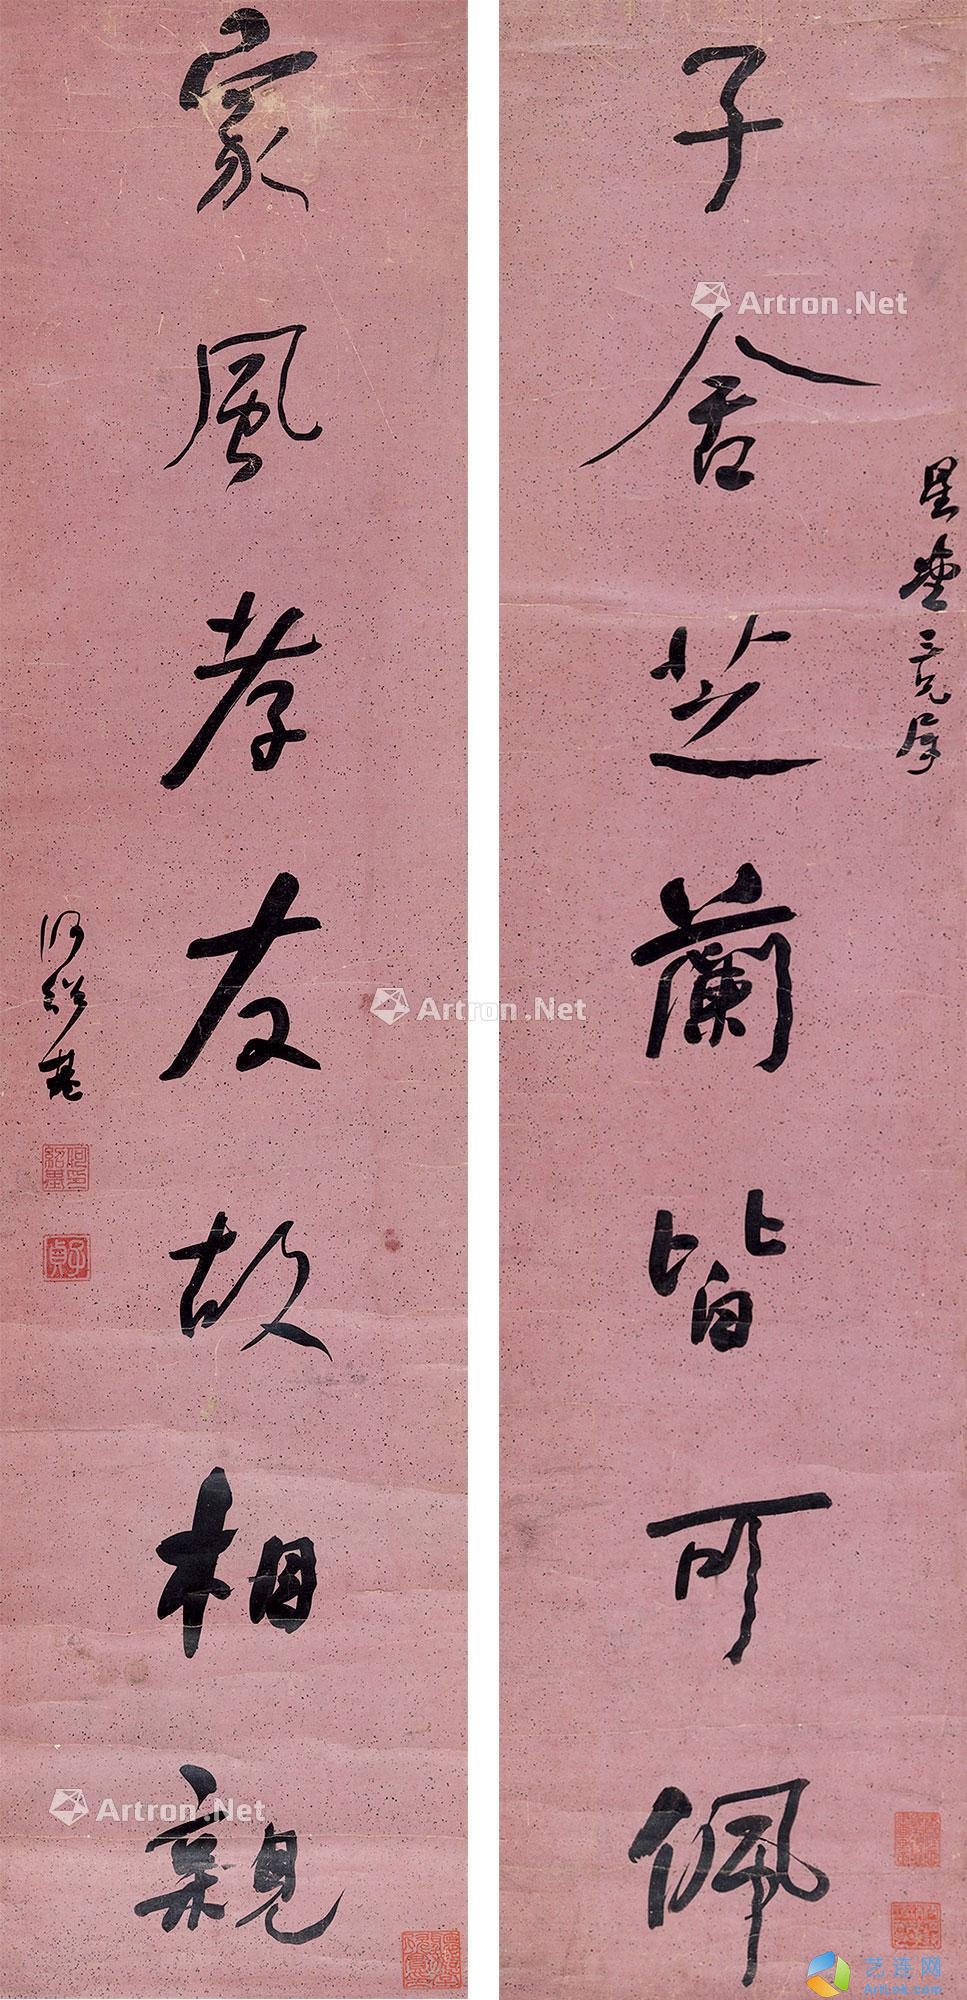 子舍芝蘭皆可佩
星垣三兄属
家風孝友故相親
何紹基
何紹基印
子貞
Artron.Net
Artron.Net
Artron.Net
艺连网
ArtLnk.com